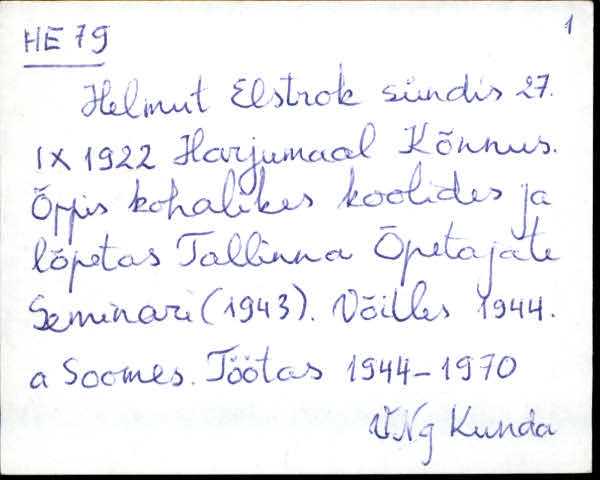 HE 79 1
Helmut Elstrok sündis 27.
IX 1922 Harjumaal Kõnnus.
Õppis kohalikes koolides ja
lõpetas Tallinna Õpetajate
Seminari (1943). Võitles 1944.
a Soomes. Töötas 1944-1970
VNg Kunda